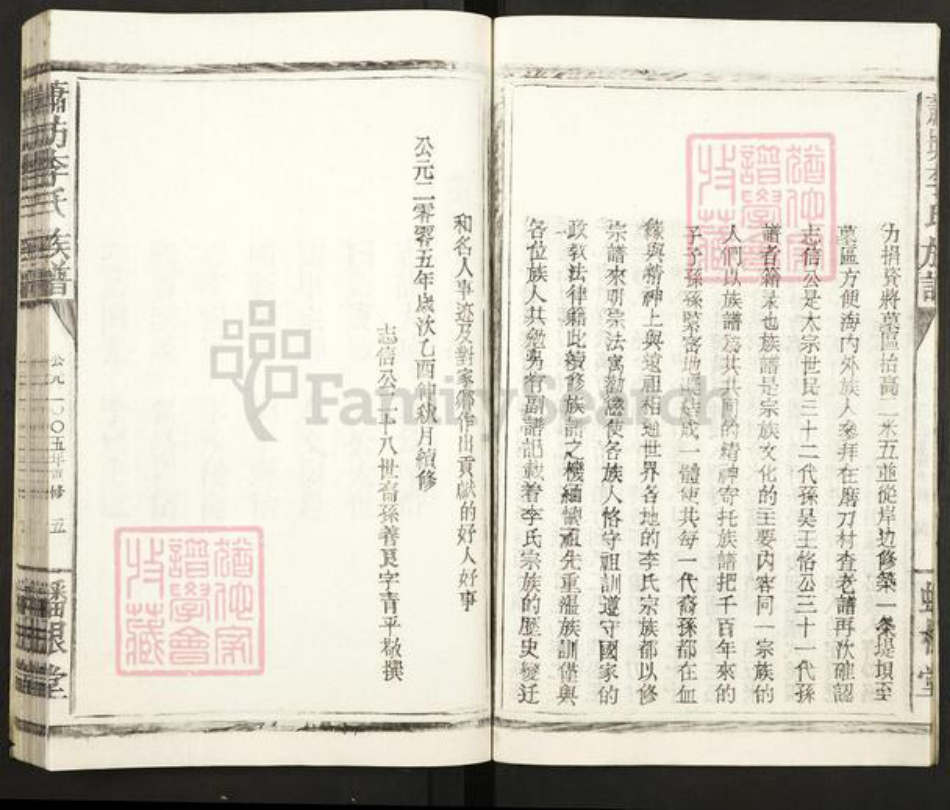 力捐資將墓區抬高一米五並從岸边修築一条堤埧至
墓區方便海内外族人參拜在磨刀村查老譜再次確認
志信公是太宗世民三十二代孫吴王恪公三十一代孫
譜者籍录也族譜是宗族文化的主要内容同一宗族的
人們以族譜為其共同的精神寄托族譜把千百年來的
子子孫孫緊密地連结成一體使其每一代裔孫都在血
緣與精神上與遠祖相通世界各地的李氏宗族都以修
宗譜來明宗法寓勸懲使各族人恪守祖訓遵守國家的
政教法律藉此續修族譜之機緬懷祖先重溫族訓僅與
各位族人共勉另有副譜記載着李氏宗族的歷史變迁
和名人事迹及對家鄉作出貢獻的好人好事
公元二零零五年歲次乙酉仲秋月續修
志信公二十八世裔孫善良字青平敬撰
李氏族譜
公元二〇〇五年重修
五
蟠根堂
猶他家譜學會收藏
猶他家譜學會收藏
FamilySearch